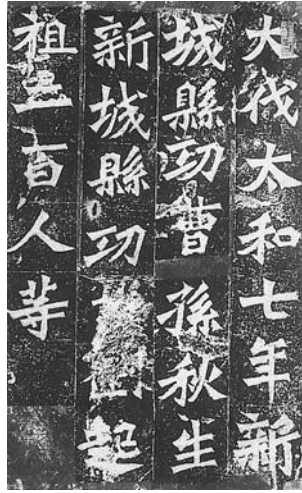 大伐太和七年新
城縣功曹孫秋生
新城縣功曹劉起
祖二百人等